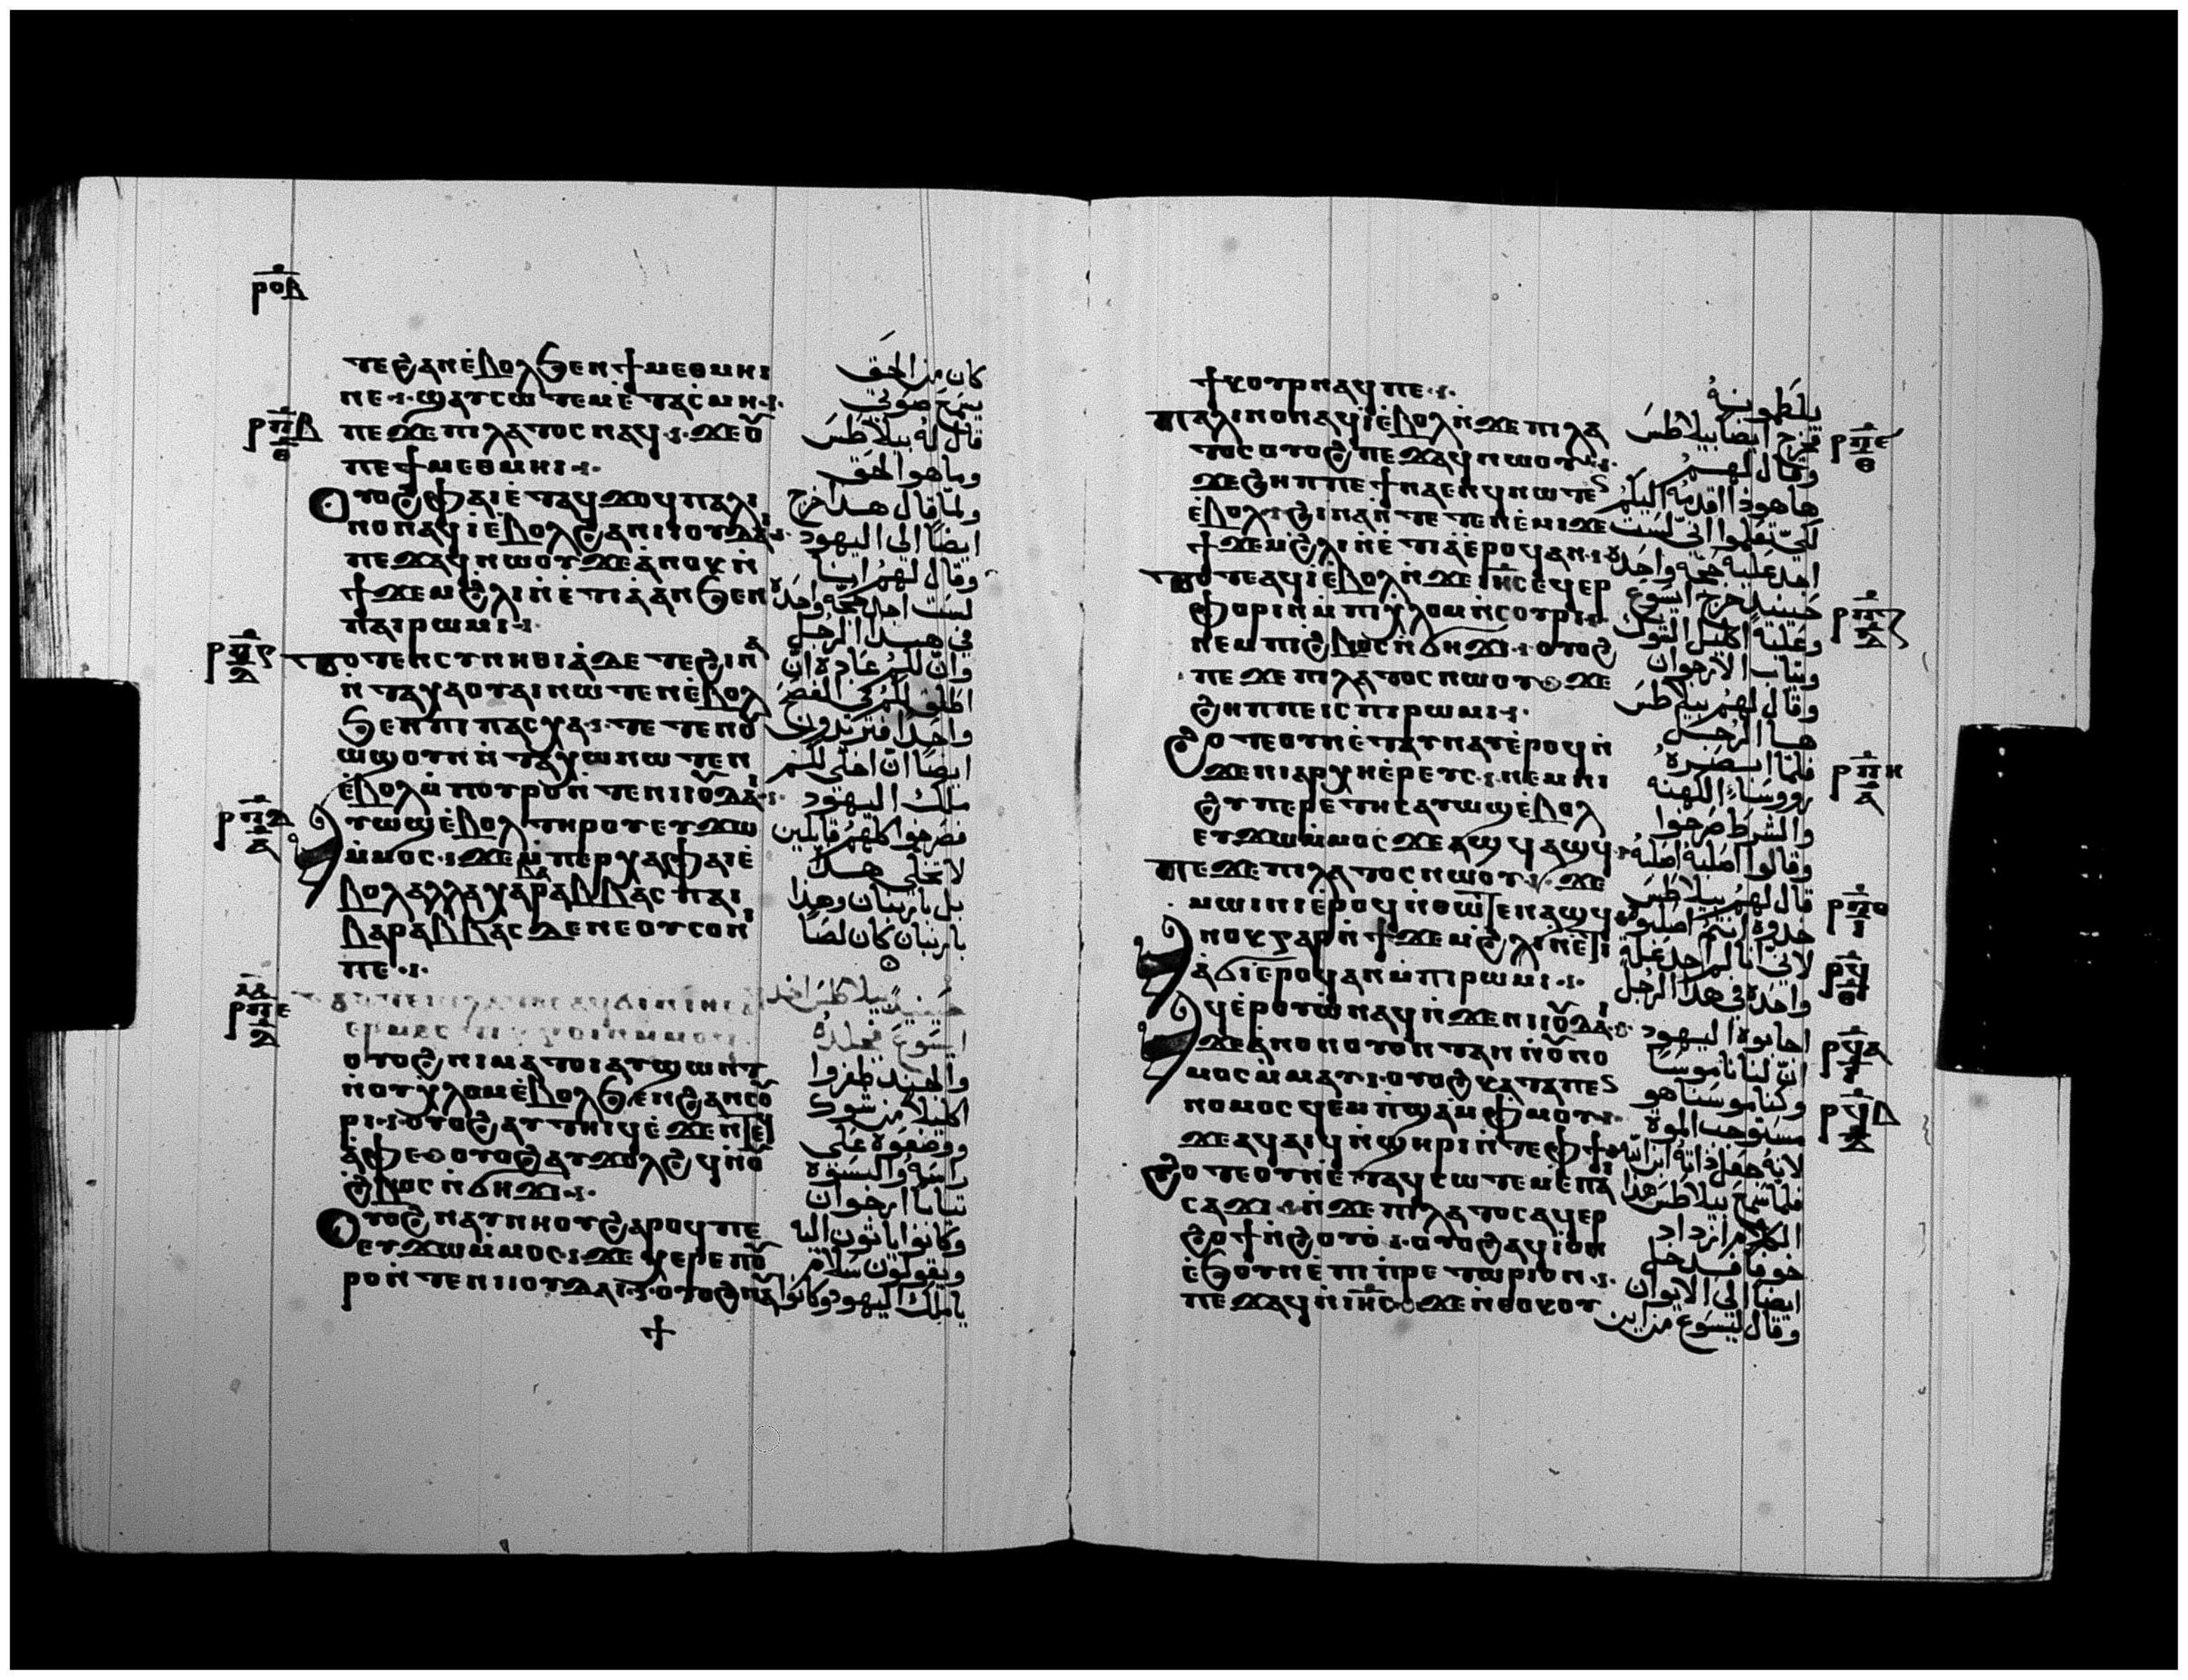 ⲣⲟⲃ
ⲧⲉϩⲁⲛⲉ̇ⲃⲟⲗϧⲉⲛϯⲙⲉⲑⲙⲏⲓ
ⲛⲉ ϣⲁⲩⲥⲱⲧⲉⲙⲉ̇ⲧⲁⲥⲙⲏ
ⲡⲉϫⲉⲡⲓⲗⲁⲧⲟⲥⲛⲁϥ ϫⲉⲟⲩ
ⲡⲉϯⲙⲉⲑⲙⲏⲓ
ⲟⲩⲟϩⲫⲁⲓⲉ̇ⲧⲁϥϫⲟϥⲡⲁⲗⲓ
ⲛⲟⲛⲁϥⲓ̇ⲉ̇ⲃⲟⲗϩⲁⲛⲓⲓⲟⲩⲇⲁⲓ
ⲡⲉϫⲁϥⲛⲱⲟⲩϫⲉⲁ̇ⲛⲟⲕⲛ̇
ϯϫⲉⲙϩⲗⲓⲛ̇ⲉ̇ⲧⲓⲁ̇ⲁⲛϧⲉⲛ
ⲡⲁⲓⲣⲱⲙⲓ
ⲧⲟⲧⲉⲛⲥⲩⲛⲏⲑⲓⲁ̇ⲇⲉⲧⲉϩⲓⲛⲁ
ⲛ̇ⲧⲁⲭⲁⲟⲩⲁⲓⲛⲱⲧⲉⲛⲉ̇ⲃⲟⲗ
ϧⲉⲛⲡⲓⲡⲁⲥⲭⲁ ⲧⲉⲧⲉⲛⲟⲩ
ⲱϣⲟⲩⲛⲛ̇ⲧⲁⲭⲱⲛⲱⲧⲉⲛ
ⲉ̇ⲃⲟⲗⲙ̇ⲡⲟⲩⲣⲟⲛ̇ⲧⲉⲛⲓⲓⲟⲩⲇⲁⲓ
ⲁⲩⲱϣⲉ̇ⲃⲟⲗⲧⲏⲣⲟⲩⲉⲩϫⲱ
ⲙ̇ⲙⲟⲥ ϫⲉⲙ̇ⲡⲉⲣⲭⲁⲫⲁⲓⲉ̇
ⲃⲟⲗⲁⲗⲗⲁⲭⲁⲃⲁⲣⲁⲃⲃⲁⲥⲡⲁⲓ
ⲃⲁⲣⲁⲃⲃⲁⲥⲇⲉⲛⲉⲟⲩⲥⲟⲛⲓ
ⲡⲉ
ⲟⲩⲟϩⲛⲓⲙⲁⲧⲟⲓⲁⲩϣⲱⲛⲧ
ⲛ̇ⲟⲩⲭ̇ⲗⲟⲙⲉ̇ⲃⲟⲗϧⲉⲛϩⲁⲛⲥⲟⲩ
ⲣⲓ ⲟⲩⲟϩⲁⲩⲧⲏⲓϥⲉ̇ϫⲉⲛⲧⲉϥ
ⲁ̇ⲫⲉ ⲟⲩⲟϩⲁⲩϫⲟⲗϩϥⲛ̇ⲟⲩ
ϩ̇ⲃⲟⲥⲛ̇ϭⲏϫⲓ
ⲟⲩⲟϩⲛⲁⲩⲛⲏⲟⲩϩⲁⲣⲟϥⲡⲉ
ⲉⲩϫⲱⲙ̇ⲙⲟⲥ ϫⲉⲭⲉⲣⲉⲡⲟⲩ
ⲣⲟⲛ̇ⲧⲉⲛⲓⲓⲟⲩⲇⲁⲓ ⲟⲩⲟϩⲛⲁⲩ
كان من الحق
يسمع صوتي
قال له بيلاطس
وما هو الحق
ولما قال هدا خرج
ايضا الي اليهود
وقال لهم انا
لست اجد حجة واحدة
في هدا الرجل
وان لكم عادة ان
اطلق لكم في الفصح
واحدا افتريدون
ايضا ان اخلي لكم
ملك اليهود
فصرخوا كلهم قايلين
لا تخلي هدا
بل باربنان وهدا
باربنان كان لصا
حينيد بيلاطس اخد
ايسوع فجلده
والجند ظفروا
اكليلا من شوك
ووضعوه علي
راسه والبسوه
ثيابا ارجوان
وكانوا ياتون اليه
ويقولون سلام
يا ملك اليهود وكانوا
ϯⲕⲟⲩⲣⲛⲁϥⲡⲉ
ⲡⲁⲗⲓⲛⲟⲛⲁϥⲓ̇ⲉ̇ⲃⲟⲗⲛ̇ϫⲉⲡⲓⲗⲁ
ⲧⲟⲥⲟⲩⲟϩⲡⲉϫⲁϥⲛⲱⲟⲩ
ϫⲉϩⲏⲡⲡⲉϯⲛⲁⲉⲛϥⲛⲱⲧⲉⲛ
ⲉ̇ⲃⲟⲗ ϩⲓⲛⲁⲛ̇ⲧⲉⲧⲉⲛⲉ̇ⲙⲓϫⲉ
ϯϫⲉⲙϩⲗⲓⲛ̇ⲉ̇ⲧⲓⲁ̇ⲉ̇ⲣⲟϥⲁⲛ
ⲧⲟⲧⲉⲁϥⲓ̇ⲉ̇ⲃⲟⲗⲛ̇ϫⲉⲓⲏⲥⲉϥⲉⲣ
ⲫⲟⲣⲓⲛⲙ̇ⲡⲓⲭ̇ⲗⲟⲙⲛ̇ⲥⲟⲩⲣⲓ
ⲛⲉⲙⲡⲓϩ̇ⲃⲟⲥⲛ̇ϭⲏϫⲓ ⲟⲩⲟϩ
ⲡⲉϫⲉⲡⲓⲗⲁⲧⲟⲥⲛⲱⲟⲩ ϫⲉ
ϩⲏⲡⲡⲉⲓⲥⲡⲓⲣⲱⲙⲓ
ϩⲟⲧⲉⲟⲩⲛⲉ̇ⲧⲁⲩⲛⲁⲩⲉ̇ⲣⲟϥⲛ̇
ϫⲉⲛⲓⲁⲣⲭⲏⲉ̇ⲣⲉⲩⲥ ⲛⲉⲙⲛⲓ
ϩⲩⲡⲉⲣⲉⲧⲏⲥⲁⲩⲱϣⲉ̇ⲃⲟⲗ
ⲉⲩϫⲱⲙ̇ⲙⲟⲥϫⲉⲁϣϥⲁϣϥ
ⲡⲉϫⲉⲡⲓⲗⲁⲧⲟⲥⲛⲱⲟⲩ ϫⲉ
ⲙⲱⲓⲛⲓⲉ̇ⲣⲟϥⲛ̇ⲑⲱⲧⲉⲛⲁϣϥ
ⲁ̇ⲛⲟⲕⲅⲁⲣⲛ̇ϯϫⲉⲙϩⲗⲓⲛ̇ⲉ̇ⲧⲓ
ⲁ̇ϭⲓⲉ̇ⲣⲟϥⲁⲛⲙ̇ⲡⲓⲣⲱⲙⲓ
ⲁϥⲉ̇ⲣⲟⲩⲱ̇ⲛⲁϥⲛ̇ϫⲉⲛⲓⲓⲟⲩⲇⲁⲓ
ϫⲉⲁ̇ⲛⲟⲛⲟⲩⲟⲛⲧⲁⲛⲛ̇ⲟⲩⲛⲟ
ⲙⲟⲥⲙ̇ⲙⲁⲩ ⲟⲩⲟϩⲕⲁⲧⲁⲡⲉⲛ
ⲛⲟⲙⲟⲥϥⲉⲙⲡ̇ϣⲁⲙ̇ⲫⲙⲟⲩ
ϫⲉⲁϥⲁⲓϥⲛ̇ϣⲏⲣⲓⲛ̇ⲧⲉⲫϯ
ϩⲟⲧⲉⲟⲩⲛⲉ̇ⲧⲁϥⲥⲱⲧⲉⲙⲉ̇ⲡⲁⲓ
ⲥⲁϫⲓ ⲛ̇ϫⲉⲡⲓⲗⲁⲧⲟⲥⲁϥⲉⲣ
ϩⲟϯⲛ̇ϩⲟⲩⲟ̇ ⲟⲩⲟϩⲁϥⲓ̇ⲟⲛ
ⲉ̇ϧⲟⲩⲛⲉ̇ⲡⲓⲡⲣⲉⲧⲱⲣⲓⲟⲛ
ⲡⲉϫⲁϥⲛ̇ⲓⲏⲥ ϫⲉⲛ̇ⲑⲟⲕⲟⲩ
يلطمونه
فخرج ايضا بيلاطس
وقال لهم
ها هودا اقدمه اليكم
لكي تعلموا اني لست
اجد عليه حجة واحدة
حينيد خرج ايسوع
وعليه اكليل الشوك
وثياب الارجوان
وقال لهم بيلاطس
هدا الرجل
فلما ابصره
رووسا الكهنة
والشرط صرخوا
وقالوا اصلبه اصلبه
قال لهم بيلاطس
خدوه انتم اصلبوه
لاني انا لم اجد علة
واحدة في هدا الرجل
اجابوه اليهود
ان لنا ناموسا
وكناموسنا هو
مستوجب الموت
لانه جعل داته ابن الله
فلما سمع بيلاطس هدا
الكلام ازداد
خوفا فدخل
ايضا الي الايوان
وقال ليسوع من اين